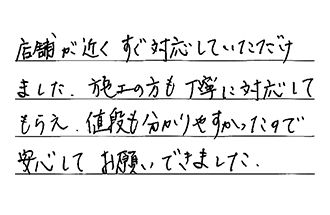 店舗が近く すぐ対応していただけ
ました. 施工の方も 丁寧に対応して
もらえ. 値段も分かりやすかったので
安心して お願いできました.